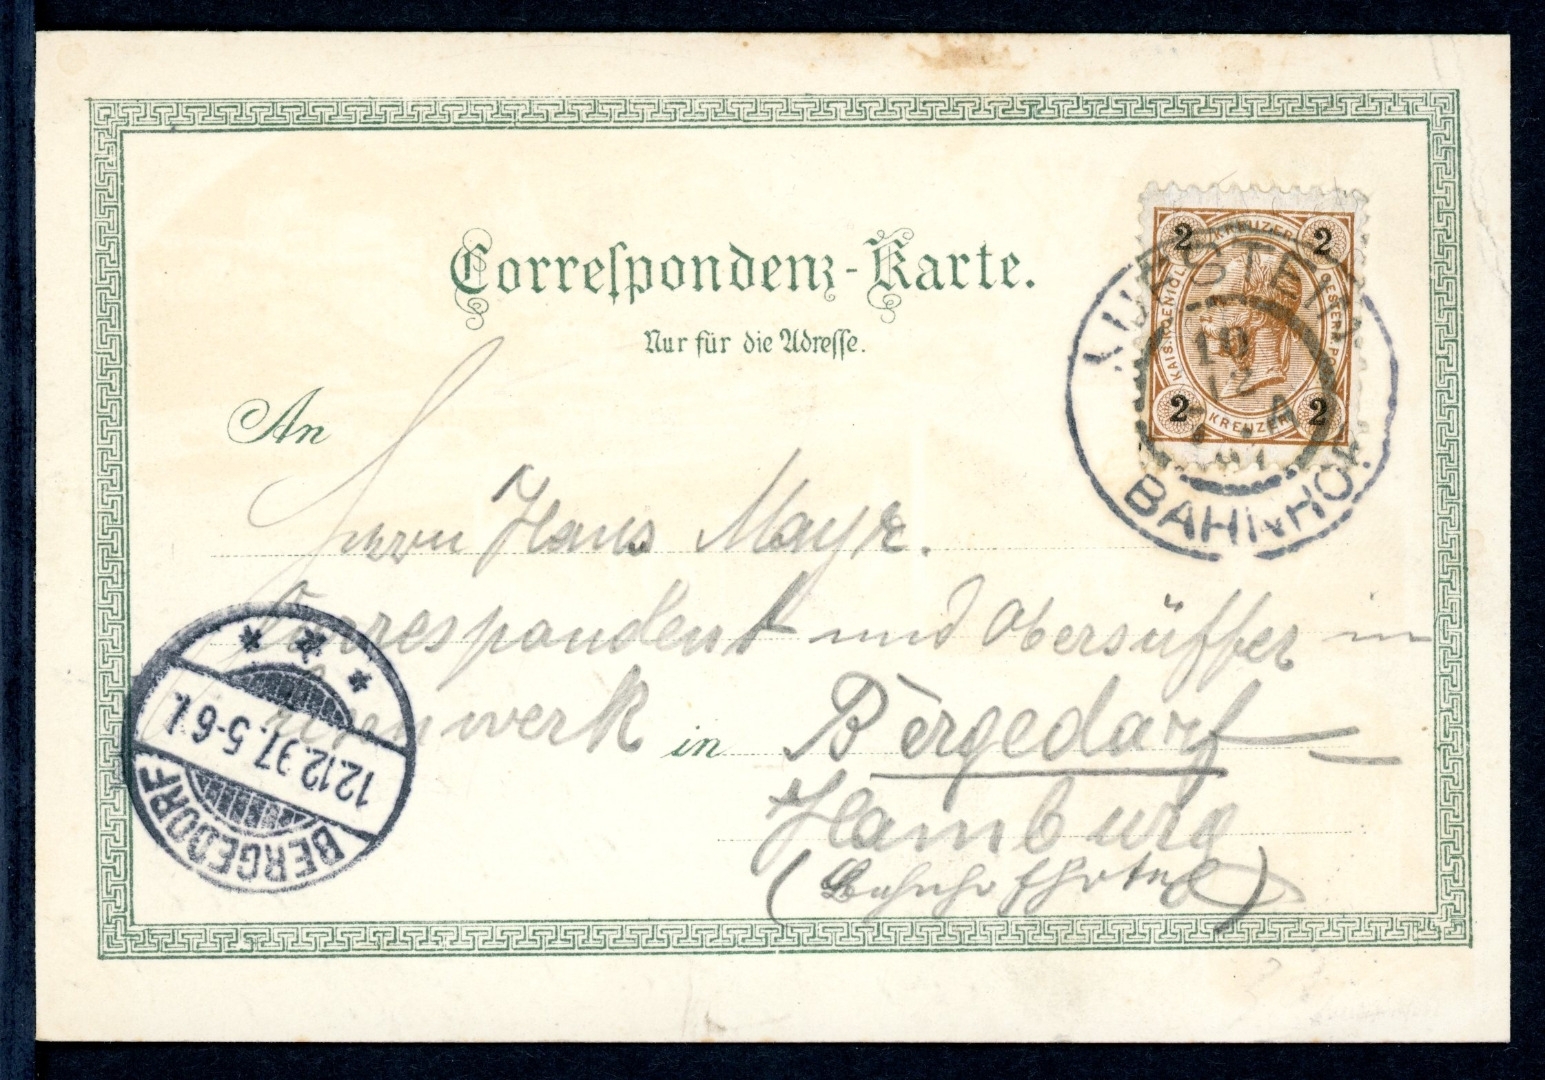 Correſpondenz-Karte.
Nur für die Adreſſe.
2 KREUZER 2
KAIS. KOENIGL. OESTERR. PO
2 KREUZER 2
KUFSTEIN
10
12
A
97
BAHNHOF
An
Herrn Hans Mayr.
Correspondent und Obersüffer in
werk in Bergedorf
Hamburg
(Bahnhofhotel)
BERGEDORF
12.12.97. 5-6